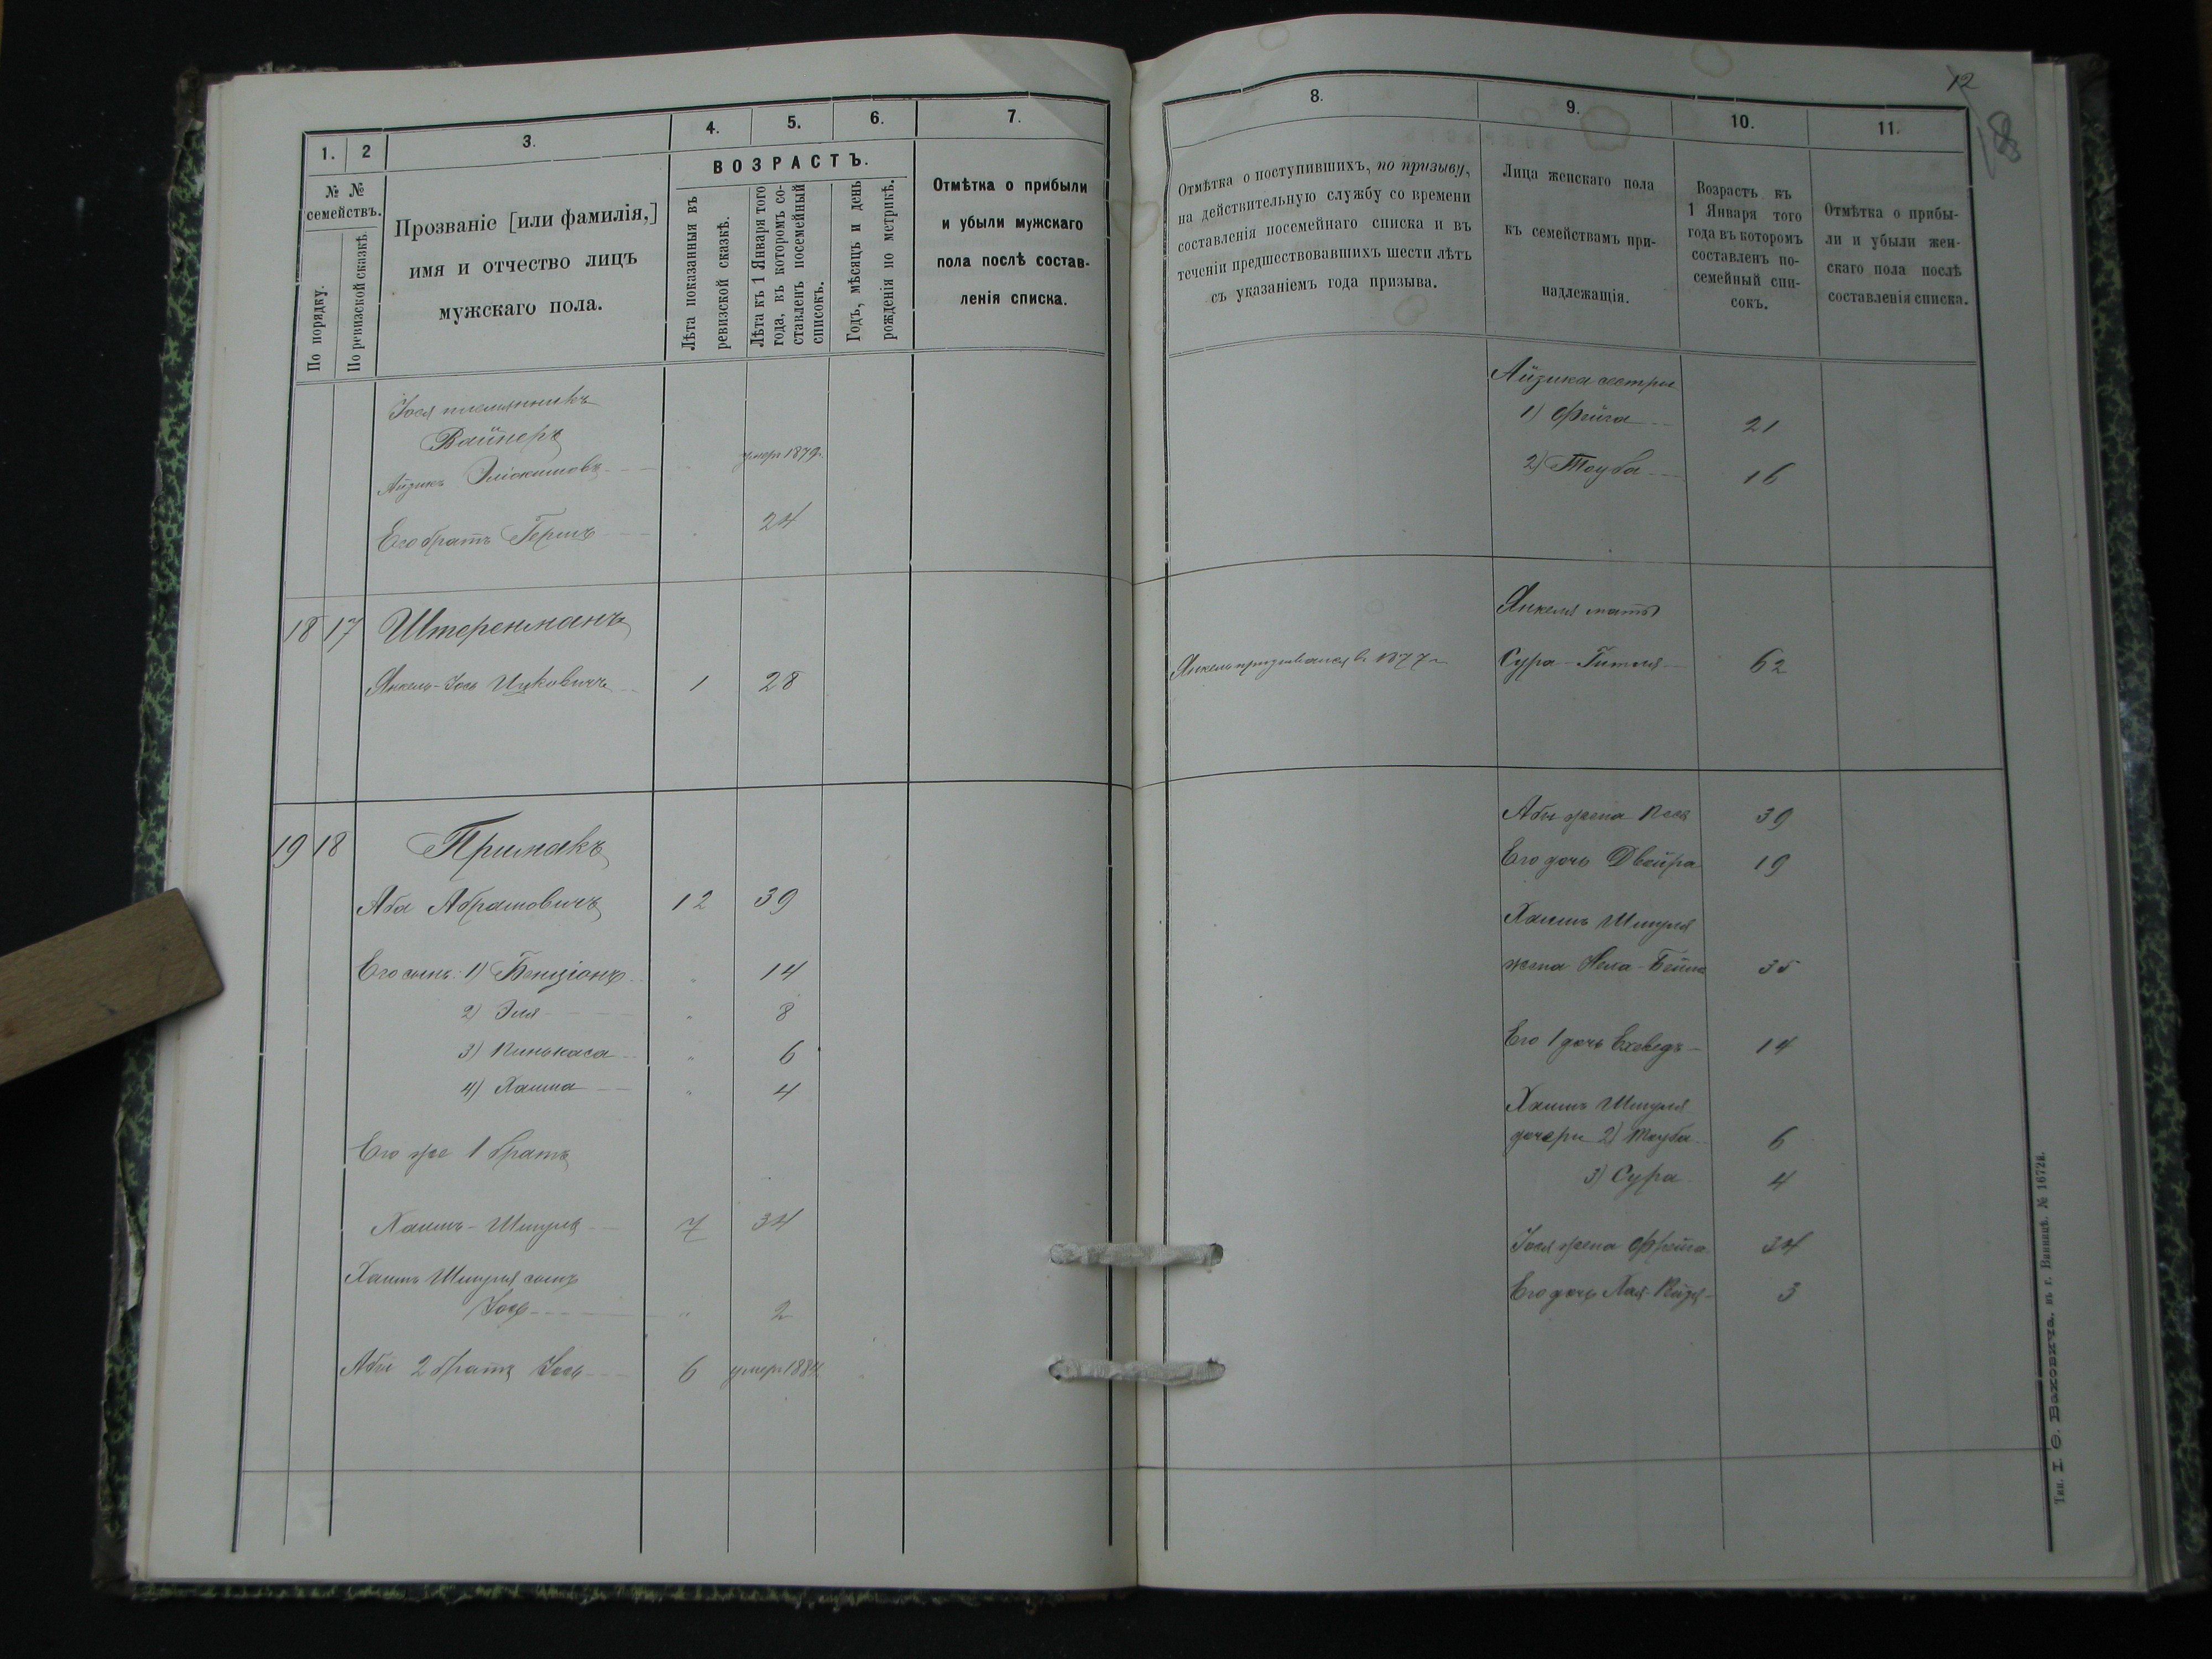 1.
2
3.
4.
5.
6.
7.
№ №
семействъ.
По порядку.
По ревизской сказкѣ.
Прозваніе [или фамилія,]
имя и отчество лицъ
мужскаго пола.
ВОЗРАСТЪ.
Лѣта показанныя въ
ревизской сказкѣ.
Лѣта къ 1 Января того
года, въ которомъ со-
ставленъ посемейный
списокъ.
Годъ, мѣсяцъ и день
рожденія по метрикѣ.
Отмѣтка о прибыли
и убыли мужскаго
пола послѣ состав-
ленія списка.
Іося племянникъ
Вайнеръ
Айзикъ умеръ 1879г.
Его братъ Гершъ 24
18 17 Штеренманъ
Янкель-Іось Ицковичъ 1 28
19 18 Примакъ
Аба Абрамовичъ 12 39
Его сынъ: 1) Бенціонъ " 14
2) Эля " 8
3) Пинькаса " 6
4) Хаима " 4
Его же 1 братъ
Хаимъ-Шмуль 7 34
Хаимъ Шмуля сынъ
Іось " 2
Абы 2 братъ Іось 6 умеръ 1884
12
8.
9.
10.
11.
Отмѣтка о поступившихъ, по призыву,
на дѣйствительную службу со времени
составленія посемейнаго списка и въ
теченіи предшествовавшихъ шести лѣтъ
съ указаніемъ года призыва.
Лица женскаго пола
къ семействамъ при-
надлежащія.
Возрастъ къ
1 Января того
года въ которомъ
составленъ по-
семейный спи-
сокъ.
Отмѣтка о прибы-
ли и убыли жен-
скаго пола послѣ
составленія списка.
Айзика сестры
1) Фейга 21
2) Тауба 16
Янкеля мать
Янкель призывался въ 1877 г. Сура-Гитля 62
Абы жена Песя 39
Его дочь Двойра 19
Хаимъ Шмуля
жена Бейла 35
Его 1 дочь Ехеведъ 14
Хаимъ Шмуля
дочери 2) Тауба 6
3) Сура 4
Іося жена 34
Его дочь Хая 3
Тип. І. Ѳ. Баховича, въ г. Винницѣ. № 1672й.